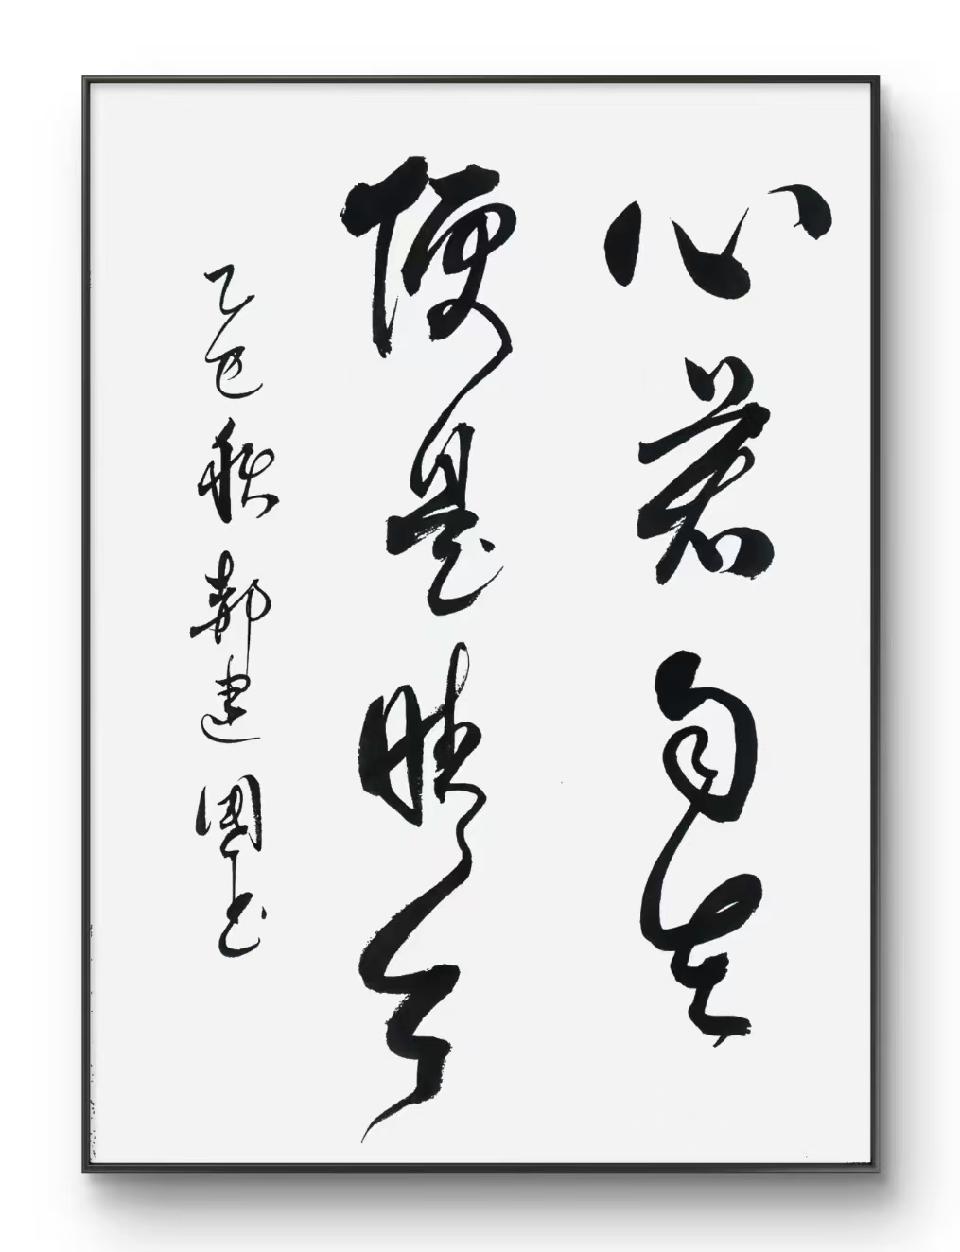 心若自在
便是晴天
乙巳秋 郭建国书